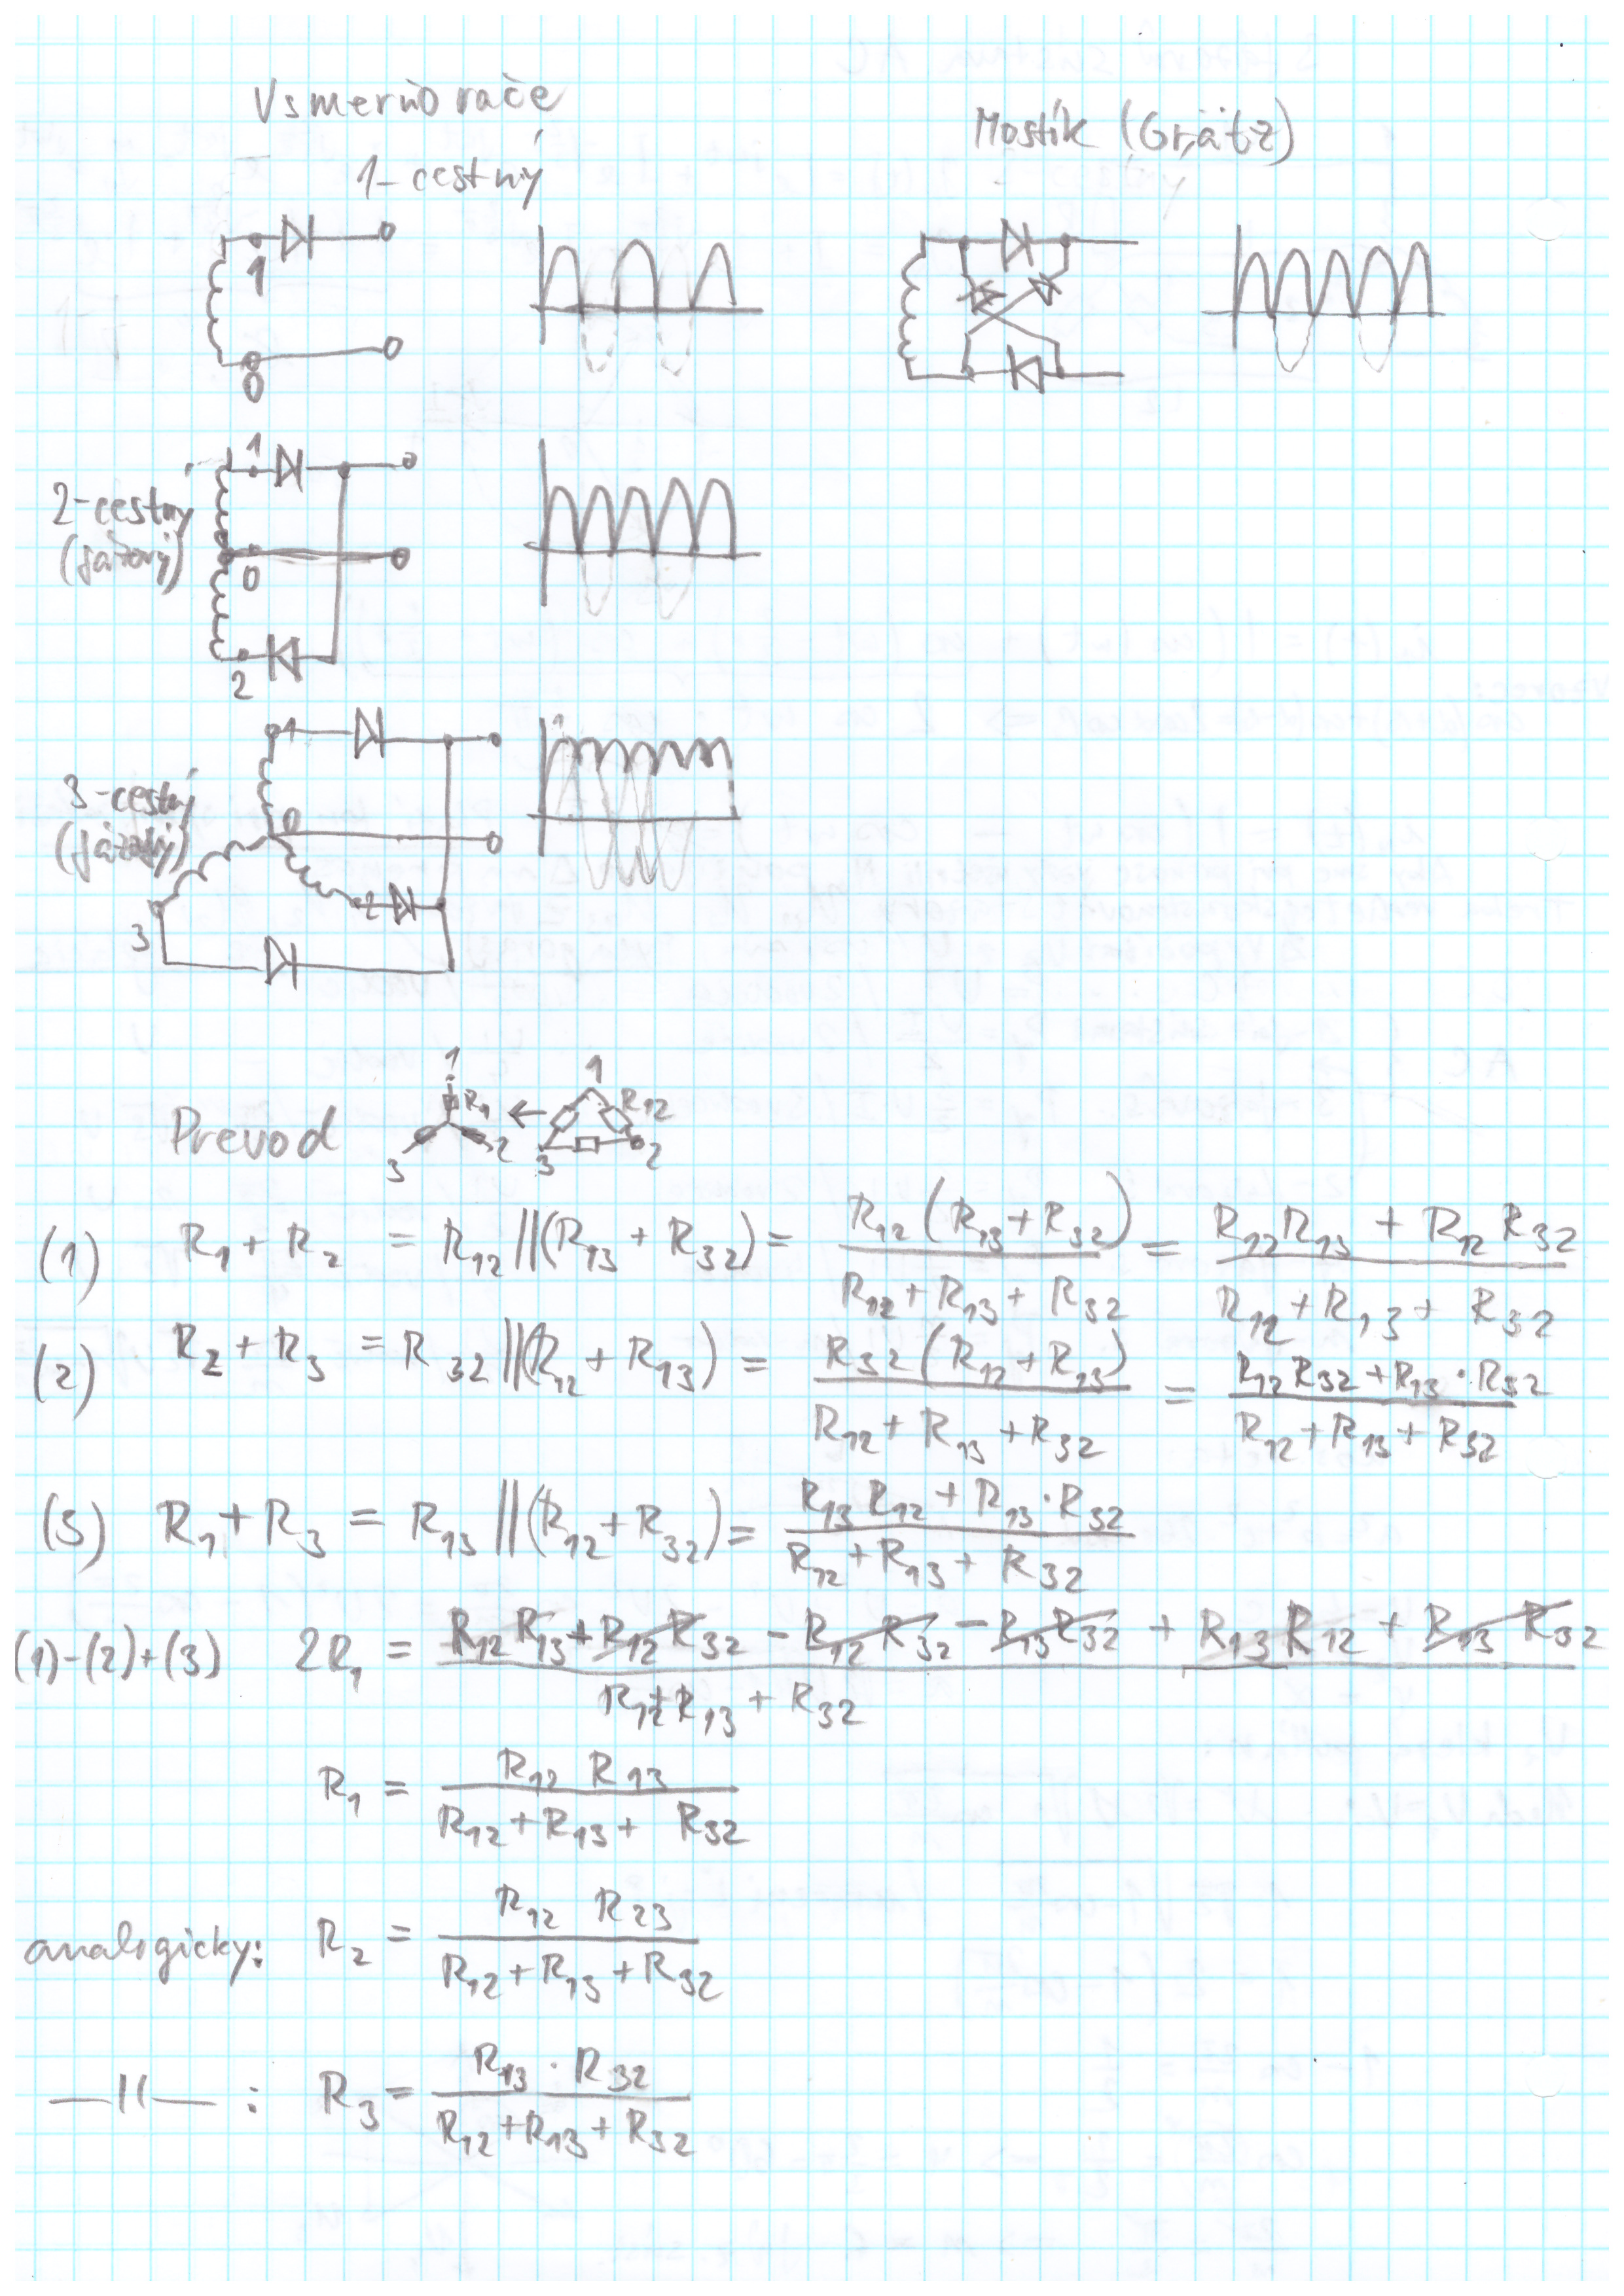 Vsmerňovače
1-cestný
Mostík (Grätz)
1
0
2-cestný
(fázový)
1
0
2
3-cestný
(fázový)
1
0
2
3
Prevod
1
R₁
2
3
←
1
R₁₂
2
3
(1) R₁ + R₂ = R₁₂ || (R₁₃ + R₃₂) = R₁₂ (R₁₃ + R₃₂) / (R₁₂ + R₁₃ + R₃₂) = (R₁₂ R₁₃ + R₁₂ R₃₂) / (R₁₂ + R₁₃ + R₃₂)
(2) R₂ + R₃ = R₃₂ || (R₁₂ + R₁₃) = R₃₂ (R₁₂ + R₁₃) / (R₁₂ + R₁₃ + R₃₂) = (R₁₂ R₃₂ + R₁₃ · R₃₂) / (R₁₂ + R₁₃ + R₃₂)
(3) R₁ + R₃ = R₁₃ || (R₁₂ + R₃₂) = (R₁₃ R₁₂ + R₁₃ · R₃₂) / (R₁₂ + R₁₃ + R₃₂)
(1)-(2)+(3) 2R₁ = (R₁₂ R₁₃ + R₁₂ R₃₂ - R₁₂ R₃₂ - R₁₃ R₃₂ + R₁₃ R₁₂ + R₁₃ R₃₂) / (R₁₂ + R₁₃ + R₃₂)
R₁ = R₁₂ R₁₃ / (R₁₂ + R₁₃ + R₃₂)
analogicky: R₂ = R₁₂ R₂₃ / (R₁₂ + R₁₃ + R₃₂)
—11— : R₃ = R₁₃ · R₃₂ / (R₁₂ + R₁₃ + R₃₂)